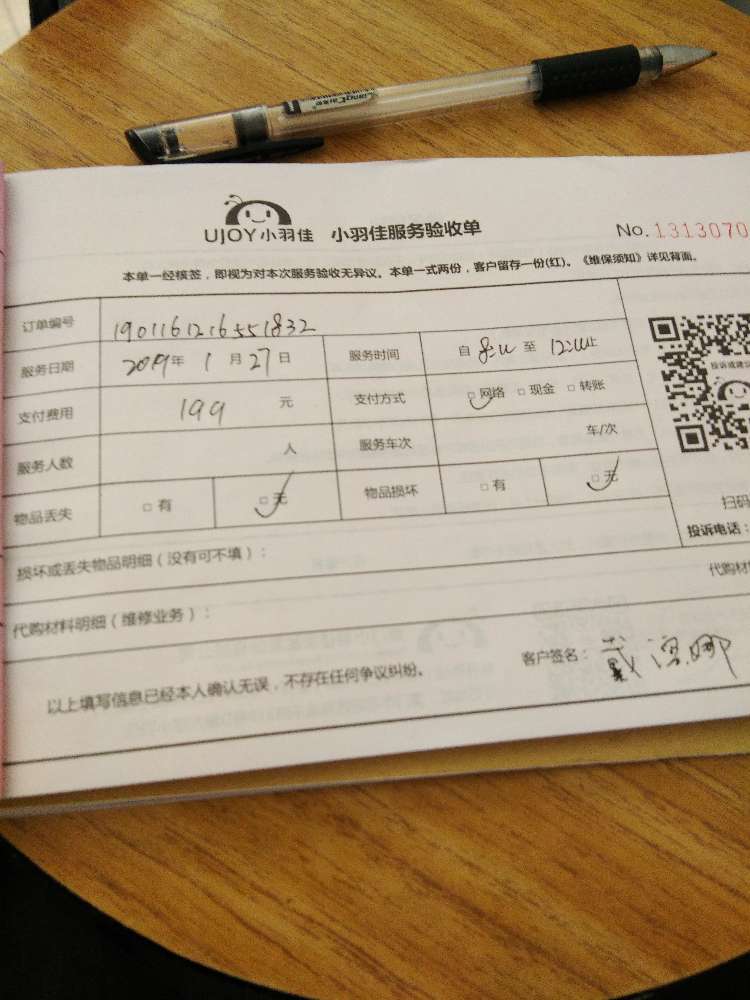 UJOY小羽佳 小羽佳服务验收单 No.1313070
本单一经核签，即视为对本次服务验收无异议。本单一式两份，客户留存一份(红)。《维保须知》详见背面。
订单编号 1901161216551832
服务日期 2019年 1月27日 服务时间 自 8:00 至 12:00止
支付费用 199 元 支付方式 □网络 □现金 □转账
服务人数 人 服务车次 车/次
物品丢失 □有 □无 物品损坏 □有 □无
投诉或建议
扫码
投诉电话：
损坏或丢失物品明细（没有可不填）：
代购材料明细（维修业务）： 代购材
以上填写信息已经本人确认无误，不存在任何争议纠纷。 客户签名：戴